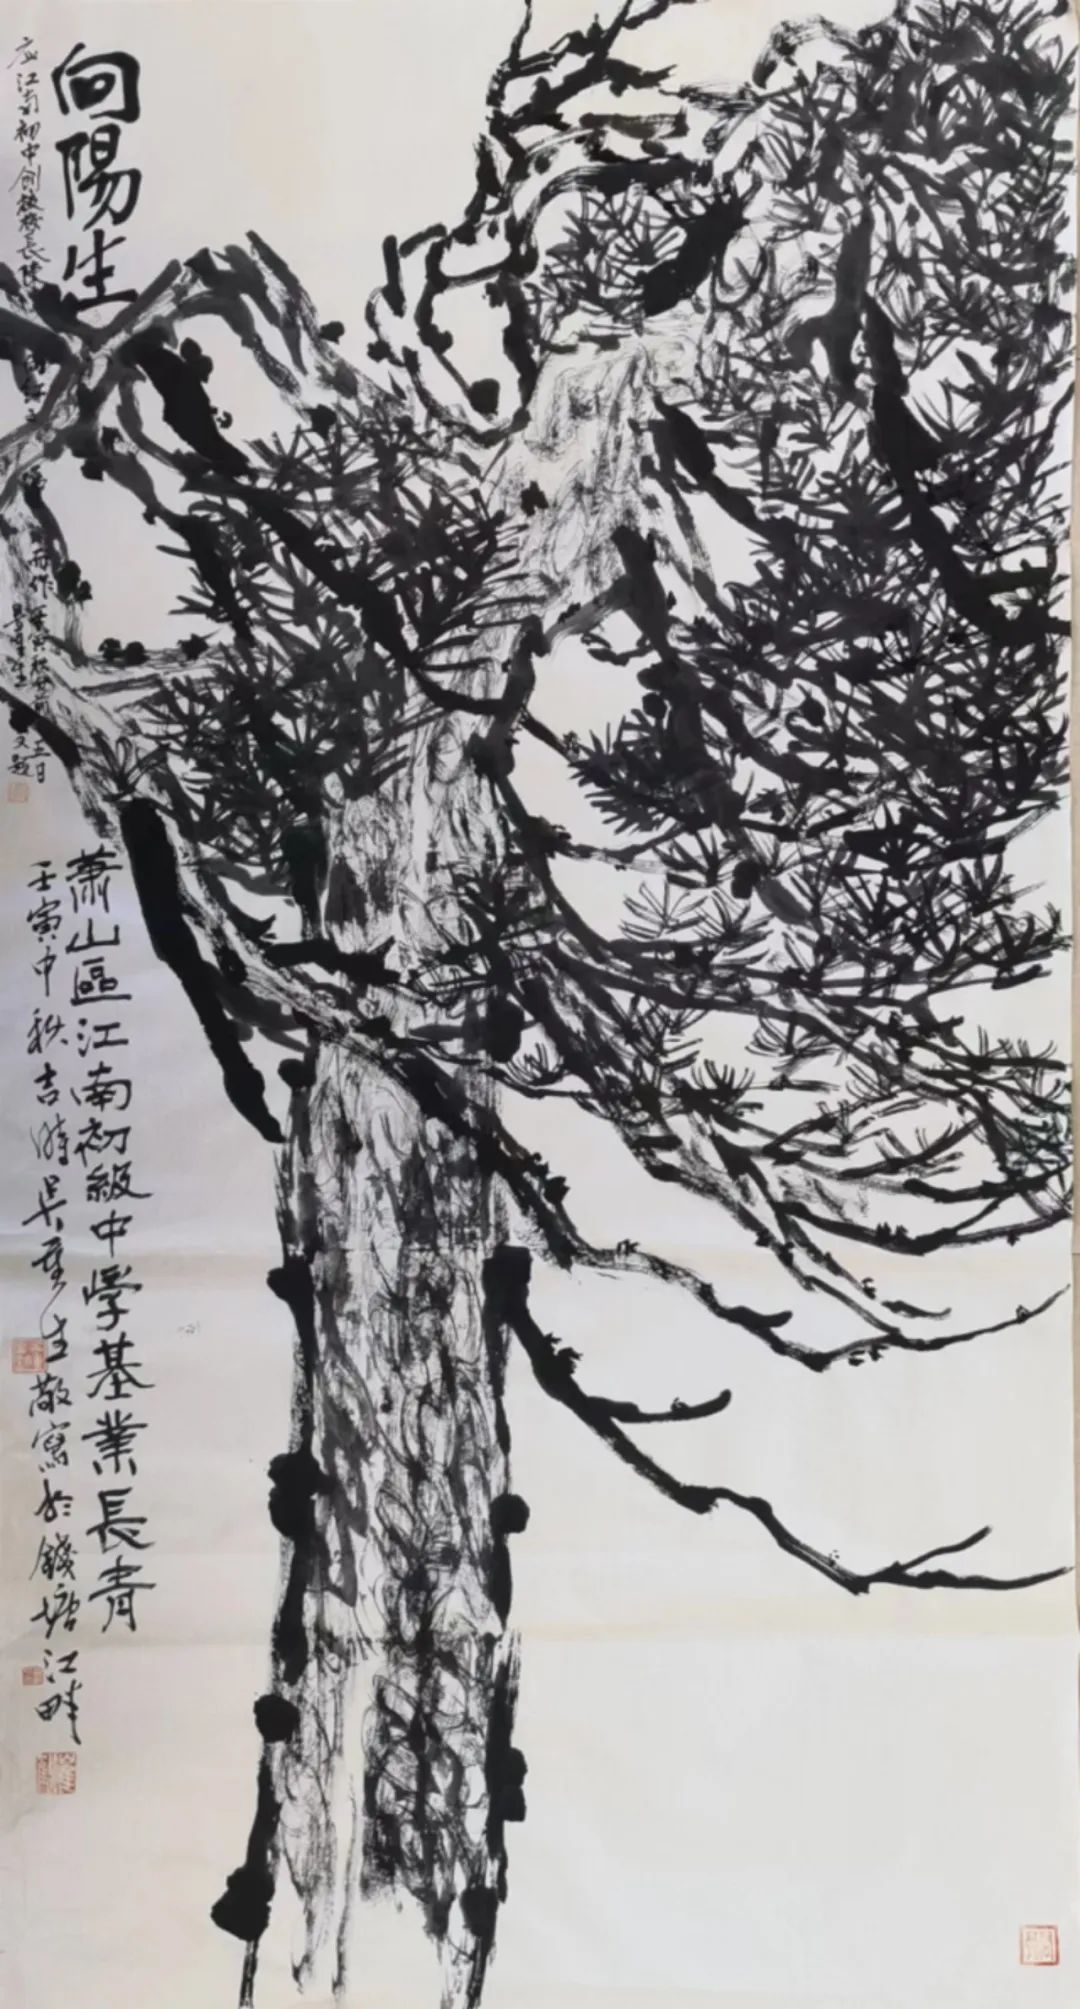 向陽生
應江南初中創校校長陳
而作壬寅秋
五日
又題
蕭山區江南初級中學基業長青
壬寅中秋吉時吳重生敬寫於錢塘江畔